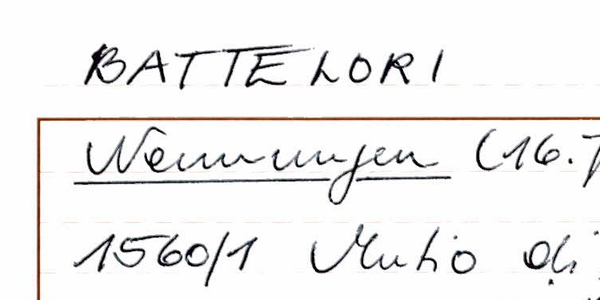 BATTELORI
Nennungen (16.
1560/1 Mutio di